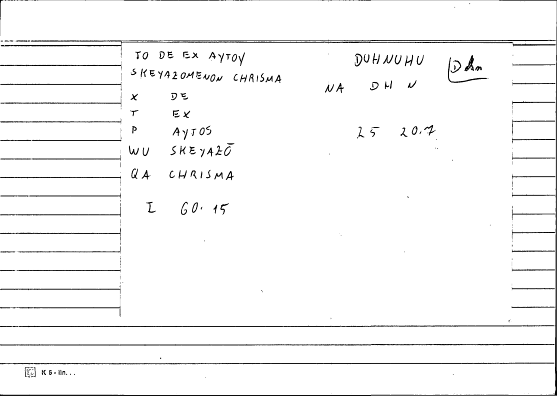 TO DE EX AYTOY
SKEYAZOMENON CHRISMA
X DE
T EX
P AYTOS
WU SKEYAZŌ
QA CHRISMA
I 60.15
DUHNUHU
NA DH N
25 20.7
K 6 - IIn...